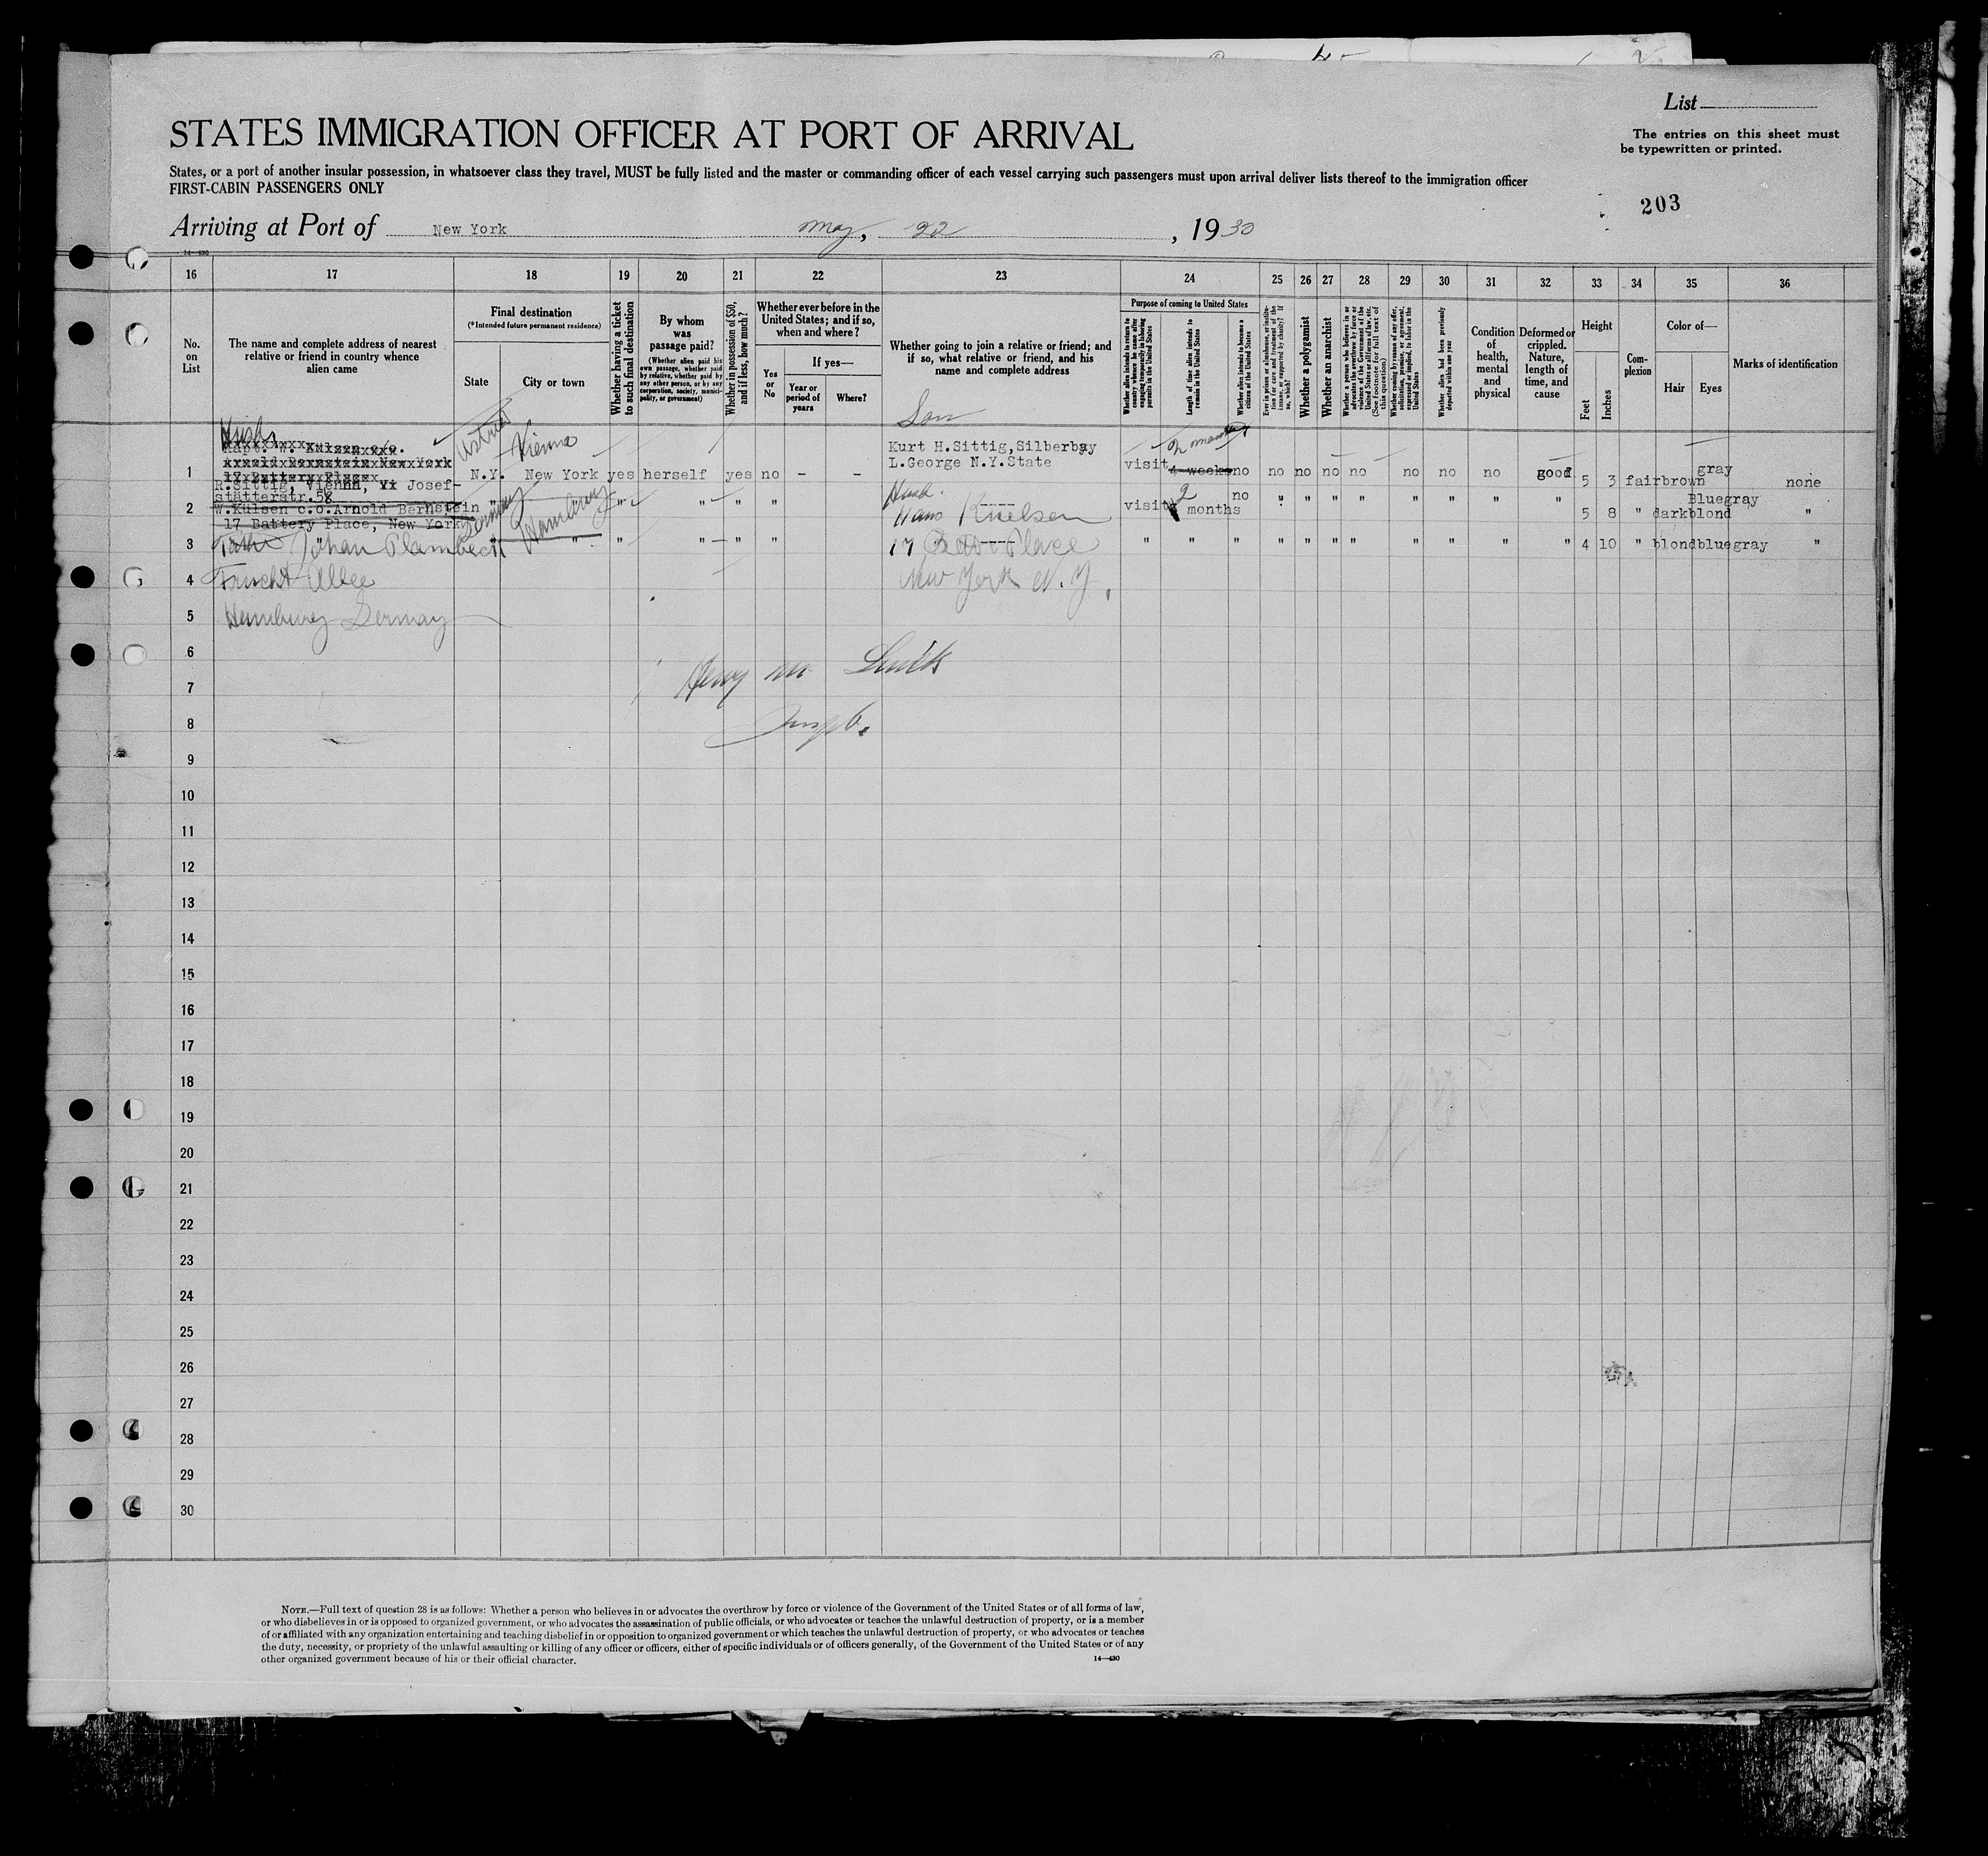 List
STATES IMMIGRATION OFFICER AT PORT OF ARRIVAL
The entries on this sheet must
be typewritten or printed.
States, or a port of another insular possession, in whatsoever class they travel, MUST be fully listed and the master or commanding officer of each vessel carrying such passengers must upon arrival deliver lists thereof to the immigration officer
FIRST-CABIN PASSENGERS ONLY
203
Arriving at Port of New York May, 22, 1930
14—430
16 17 18 19 20 21 22 23 24 25 26 27 28 29 30 31 32 33 34 35 36
No. on List
The name and complete address of nearest relative or friend in country whence alien came
Final destination
(*Intended future permanent residence)
State
City or town
Whether having a ticket to such final destination
By whom was passage paid?
(Whether alien paid his own passage, whether paid by relative, whether paid by any other person, or by any corporation, society, municipality, or government)
Whether in possession of $50, and if less, how much?
Whether ever before in the United States; and if so, when and where?
Yes or No
If yes—
Year or period of years
Where?
Whether going to join a relative or friend; and if so, what relative or friend, and his name and complete address
Purpose of coming to United States
Whether alien intends to return to country whence he came after engaging temporarily in laboring pursuits in the United States
Length of time alien intends to remain in the United States
Whether alien intends to become a citizen of the United States
Ever in prison or almshouse, or institution for care and treatment of the insane, or supported by charity? If so, which?
Whether a polygamist
Whether an anarchist
Whether a person who believes in or advocates the overthrow by force or violence of the Government of the United States or all forms of law, etc. (See footnote for full text of this question)
Whether coming by reason of any offer, solicitation, promise, or agreement, expressed or implied, to labor in the United States
Whether alien had been previously deported within one year
Condition of health, mental and physical
Deformed or crippled. Nature, length of time, and cause
Height
Feet
Inches
Complexion
Color of—
Hair
Eyes
Marks of identification
Husb.
Son
Kapt. W. Külsen c/o.
Arnold Bernstein New York
17 Battery Place
Austria Vienna
2 months
1 R.Sittig, Vienna, Josef-
stätterstr.58
N.Y. New York yes herself yes no - -
Kurt H.Sittig, Silberbay
L.George N.Y.State
visit 4 weeks no no no no no no no no good 5 3 fair brown gray none
2 W.Külsen c.o.Arnold Bernstein
17 Battery Place, New York
Germany Hamburg
" " " " "
Husb.
Hans Kuelsen
visit 2 months no " " " " " " " " 5 8 " dark blond Bluegray "
3 Johan Plambeck
" " " " " "
17 Batt. Place
" " " " " " " " " " " 4 10 " blond bluegray "
4 Frucht Allee
New York N.Y.
5 Hamburg Germany
6
7 Henry
8 Insp.
9
10
11
12
13
14
15
16
17
18
19
20
21
22
23
24
25
26
27
28
29
30
NOTE.—Full text of question 28 is as follows: Whether a person who believes in or advocates the overthrow by force or violence of the Government of the United States or of all forms of law,
or who disbelieves in or is opposed to organized government, or who advocates the assassination of public officials, or who advocates or teaches the unlawful destruction of property, or is a member
of or affiliated with any organization entertaining and teaching disbelief in or opposition to organized government or which teaches the unlawful destruction of property, or who advocates or teaches
the duty, necessity, or propriety of the unlawful assaulting or killing of any officer or officers, either of specific individuals or of officers generally, of the Government of the United States or of any
other organized government because of his or their official character.
14—430